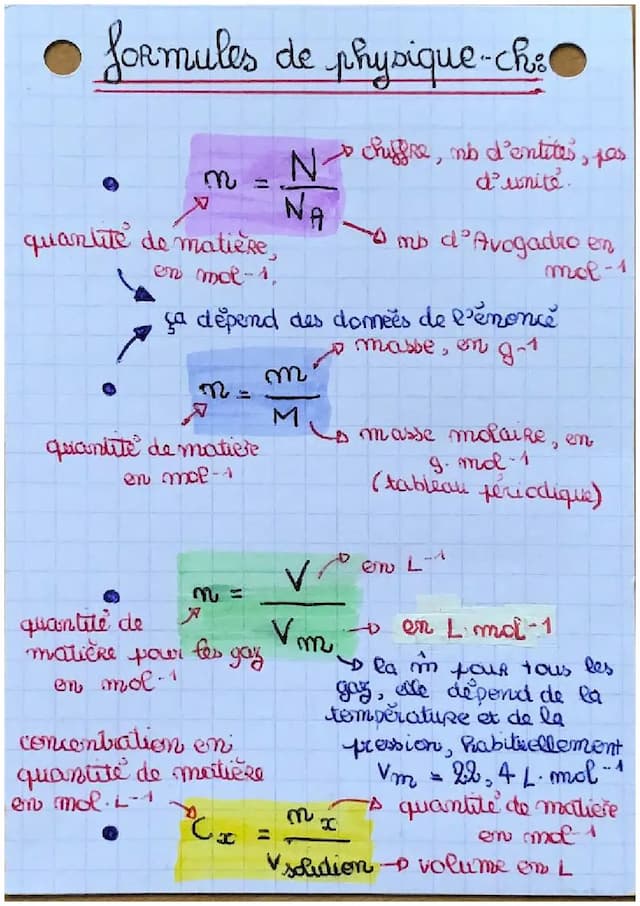 formules de physique-ch:
n = N / NA
chiffre, nb d'entités, pas
d'unité.
quantité de matière,
en mol-1.
nb d'Avogadro en
mol-1
ça dépend des données de l'énoncé
n = m / M
masse, en g-1
quantité de matière
en mol-1
masse molaire, en
g. mol-1
(tableau périodique)
n = V / Vm
en L-1
quantité de
matière pour les gaz
en mol-1
en L. mol-1
la m̂ pour tous les
gaz, elle dépend de la
température et de la
pression, habituellement
Vm = 22,4 L. mol-1
concentration en
quantité de matière
en mol. L-1
Cx = nx / Vsolution
quantité de matière
en mol-1
volume en L